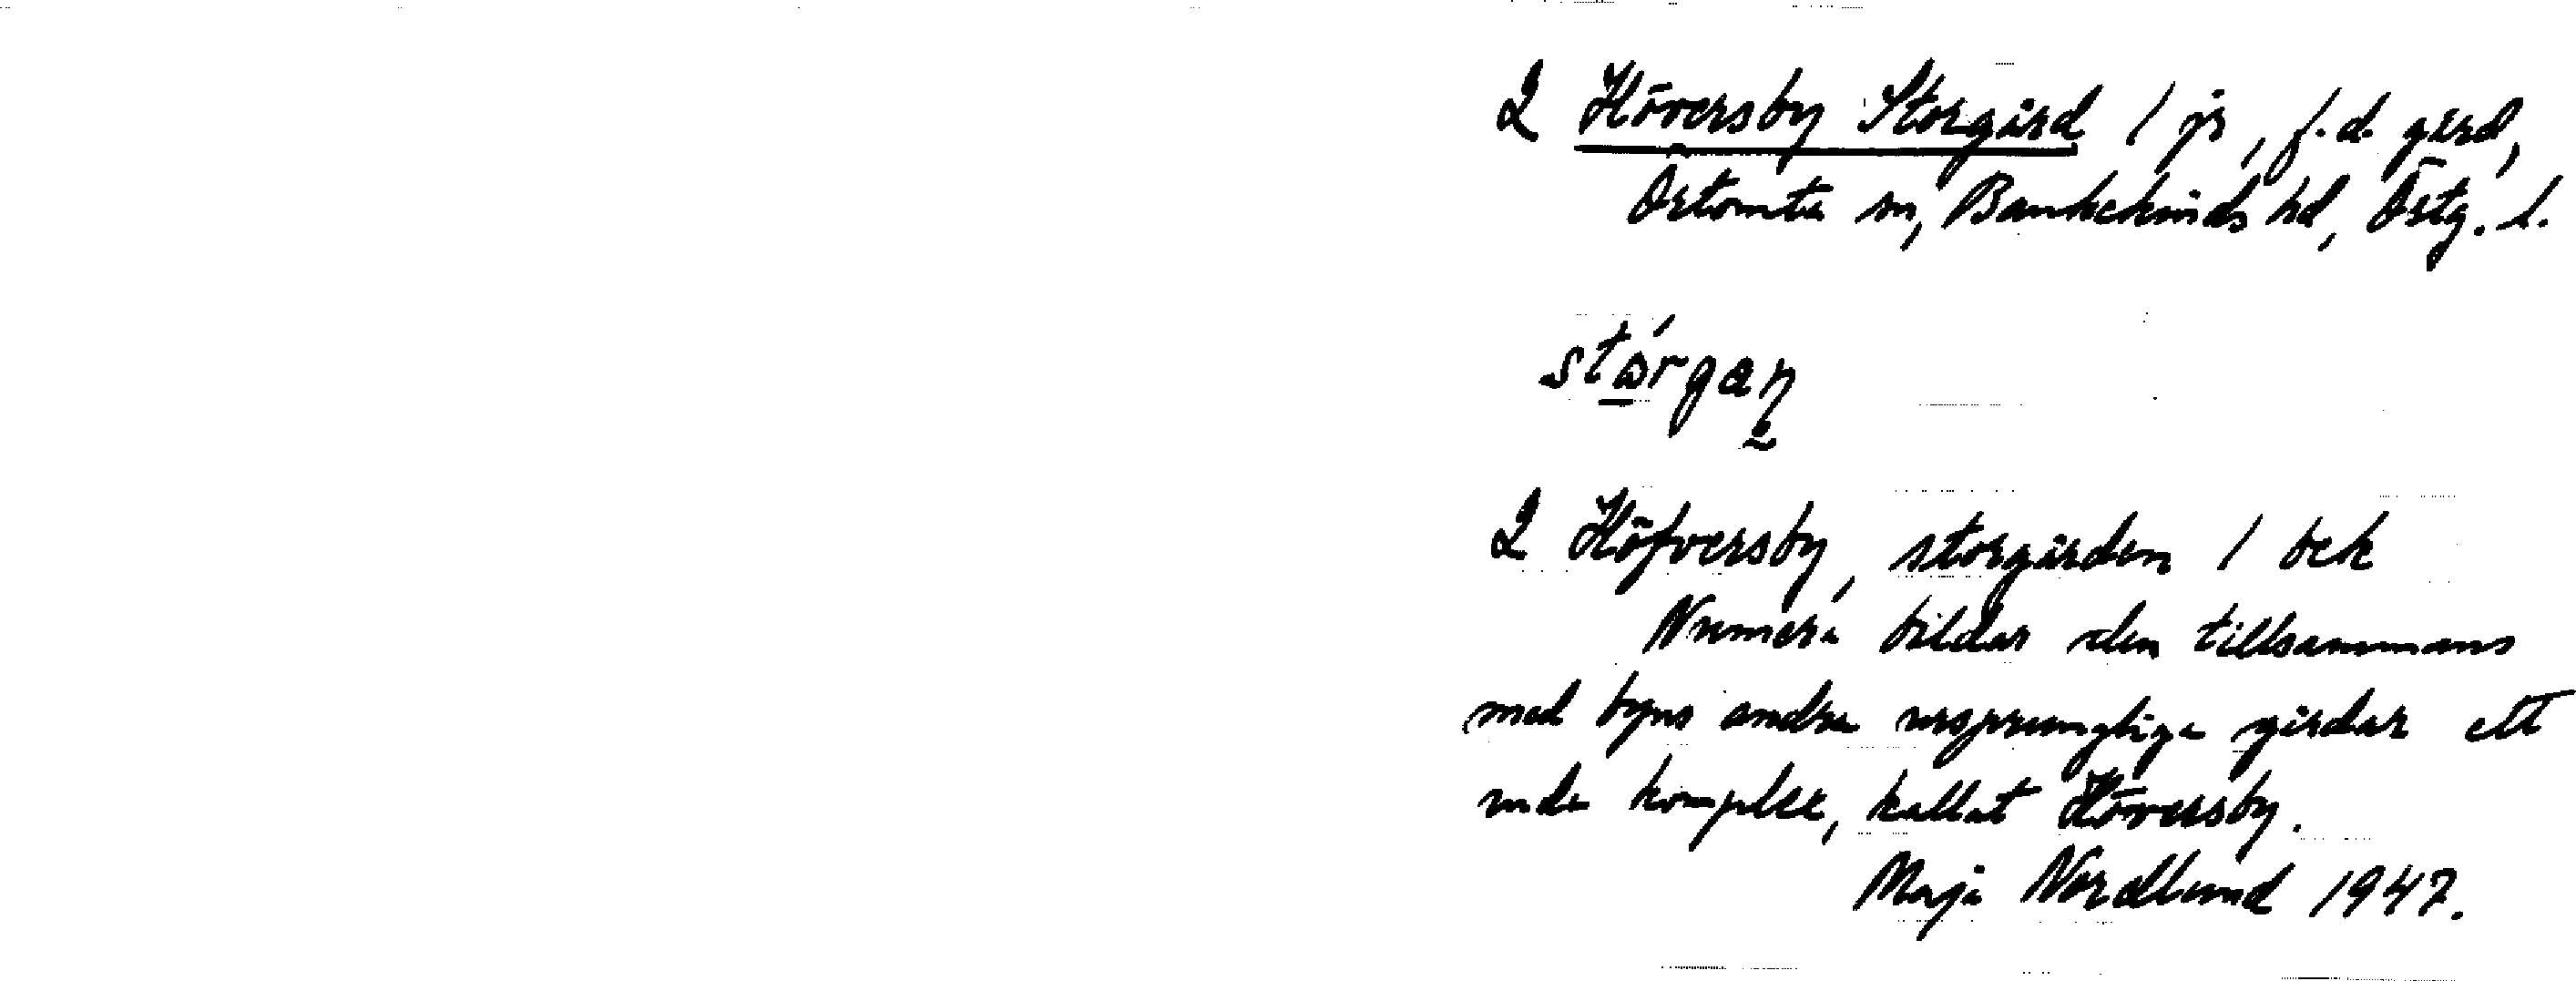 2 Höversby Storgård 1 jr, f.d. gård,
Örtomta sn, Bankekinds hd, Östg. l.
2 Höfversby, storgården 1 bek
Numera bildar den tillsammans
med byns andra ursprungliga gårdar ett
enda komplex, kallat Höversby.
Maja Nordlund 1947.